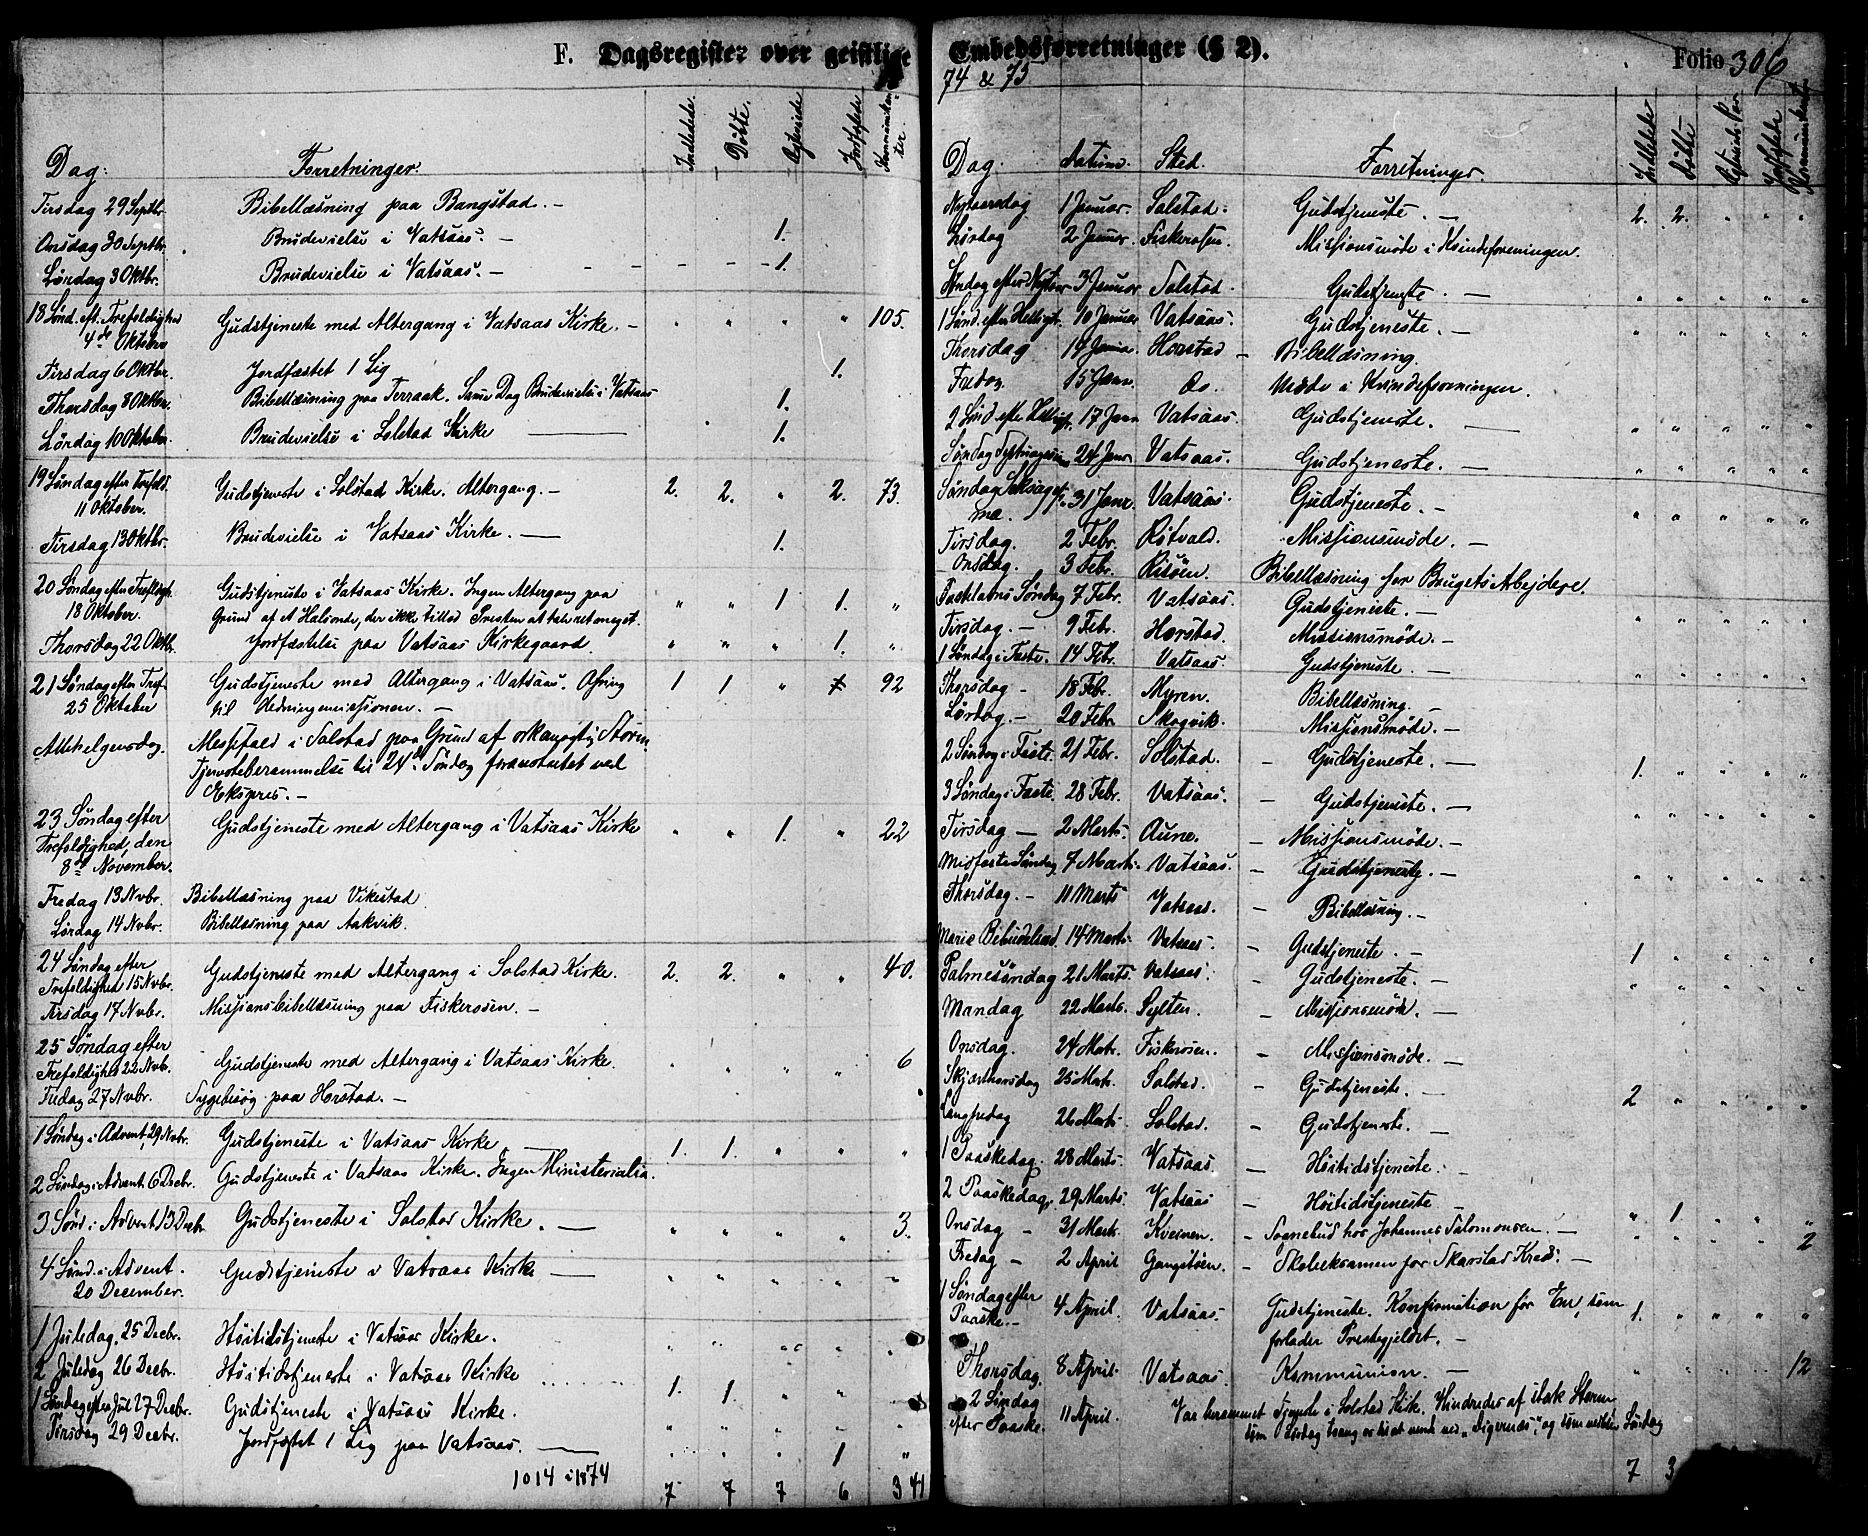 F. Dagsregister over geistlige
Dag. Forretninger. Indledede. Døbte. Jordfæstede Kommunikanter.
Tirsdag 29 Septbr. Bibellæsning paa Bangstad. —
Onsdag 30 Septbr. Brudevielse i Vatsaas. — 1.
Lørdag 3 Oktbr. Brudevielse i Vatsaas. — 1.
18 Sønd. eft. Trefoldighed Gudstjeneste med Altergang i Vatsaas Kirke. — " " " " 105.
4de Oktober
Tirsdag 6 Oktbr. Jordfæstet 1 Lig 1.
Thorsdag 8 Oktbr. Bibellæsning paa Terraak. Samme Dag Brudevielse i Vatsaas 1.
Lørdag 10 Oktober. Brudevielse i Solstad Kirke — 1.
19 Søndag efter Trefold. Gudstjeneste i Solstad Kirke. Altergang. — 2. 2. " 2. 73.
11 Oktober.
Tirsdag 13 Oktbr. Brudevielse i Vatsaas Kirke. — 1.
20 Søndag efter Trefoldigh. Gudstjeneste i Vatsaas Kirke. Ingen Altergang paa
18 Oktober. Grund af et Halsonde, der ikke tillod Presten at tale ret meget. " " 1 1. "
Thorsdag 22 Oktbr. Jordfæstelse paa Vatsaas Kirkegaard. " " " 1. "
21 Søndag efter Tref. Gudstjeneste med Altergang i Vatsaas. Ofring 1 1 " 92
25 Oktober til Hedningemissionen. —
Allehelgensdag. Messefald i Solstad paa Grund af orkanagtig Storm.
Tjenesteberammelse til 24de Søndag foranstaltet ved
Ekspres. —
23 Søndag efter Gudstjeneste med Altergang i Vatsaas Kirke " " 1. " 22
Trefoldighed, den
8de November.
Fredag 13 Nvbr. Bibellæsning paa Vikestad.
Lørdag 14 Nvbr. Bibellæsning paa Aakvik.
24 Søndag efter Gudstjeneste med Altergang i Solstad Kirke. 2. 2. " " 40.
Trefoldighed 15 Nvbr.
Tirsdag 17 Nvbr. Missionsbibellæsning paa Fiskerosen. —
25 Søndag efter Gudstjeneste med Altergang i Vatsaas Kirke. " " " " 6
Trefoldighed 22 Nvb.
Fredag 27 Nvbr. Sygebesøg paa Horstad. —
1 Søndag i Advent, 29 Nvbr. Gudstjeneste i Vatsaas Kirke — 1. 1. " " "
2 Søndag i Advent 6 Decbr. Gudstjeneste i Vatsaas Kirke. Ingen Ministerialia.
3 Sønd. i Advent 13 Decbr. Gudstjeneste i Solstad Kirke. — " " " " 3.
4 Sønd. i Advent. Gudstjeneste i Vatsaas Kirke — " " " " "
20 December.
1 Juledag. 25 Decbr. Høitidstjeneste i Vatsaas Kirke. " " " " "
2 Juledag 26 Decbr. Høitidstjeneste i Vatsaas Kirke 1. 1. " " "
1 Søndag efter Jul 27 Decbr. Gudstjeneste i Vatsaas Kirke. " " " " "
Tirsdag 29 Decbr. Jordfæstet 1 Lig paa Vatsaas. — " " " 1 "
1014 i 1874 7 7 7 6 341
Embedsforretninger (§ 2). Folio 306
74 & 75
Dag. Datum. Sted. Forretninger. Døbte Jordfæstede
Nytaarsdag 1 Januar. Solstad. Gudstjeneste. — 2. 2. " " "
Lørdag 2 Januar. Fiskerosen. Missionsmøde i Kvindeforeningen.
Søndag efter Nytaar 3 Januar Solstad. Gudstjeneste. — " " " " "
1 Sønd. efter Hellig. 10 Januar Vatsaas. Gudstjeneste. — " " " " "
Thorsdag 14 Januar. Horstad — Bibellæsning.
Fredag. 15 Janr. Do. Møde i Kvindeforeningen.
2 Sønd. efter Hellig. 17 Janr Vatsaas. Gudstjeneste. — " " " " "
Søndag Septuagesima 24 Janr Vatsaas. Gudstjeneste. — " " " " "
Søndag Seksagesi- 31 Janr. Vatsaas. Gudstjeneste. — " " " " "
ma.
Tirsdag. 2 Febr. Røtvold. Missionsmøde. —
Onsdag. 3 Febr. Risøen. Bibellæsning for Brugets Arbejdere.
Fastelavns Søndag 7 Febr. Vatsaas. Gudstjeneste. — " " " " "
Tirsdag. — 9 Febr. Horstad. Missionsmøde. —
1 Søndag i Faste. 14 Febr. Vatsaas Gudstjeneste. — " " " " "
Thorsdag — 18 Febr. Myren. Bibellæsning. —
Lørdag. — 20 Febr. Skogvik. Missionsmøde. —
2 Søndag i Faste 21 Febr. Solstad. — Gudstjeneste. — 1. " " " "
3 Søndag i Faste. 28 Febr. Vatsaas. — Gudstjeneste. — " " " " "
Tirsdag — 2 Marts. Aune. — Missionsmøde. —
Midfaste Søndag 7 Marts. Vatsaas. — Gudstjeneste. — " " " " "
Thorsdag. — 11 Marts Vatsaas. — Bibellæsning. —
Mariæ Bebudelsesd. 14 Marts Vatsaas. — Gudstjeneste. — 1 " " " "
Palmesøndag 21 Marts. Vatsaas. Gudstjeneste. — " " " " "
Mandag 22 Marts. Sylten. — Missionsmøde. —
Onsdag. 24 Marts. Fiskerosen. — Missionsmøde. —
Skjærthorsdag 25 Marts. Solstad. — Gudstjeneste. — 2 " " " "
Langfredag 26 Marts. Solstad. — Gudstjeneste. —
1 Paaskedag. 28 Marts. Vatsaas. — Høitidstjeneste. —
2 Paaskedag. 29 Marts. Vatsaas — Høitidstjeneste — " 1 " " "
Onsdag — 31 Marts. Kvernen. — Sognebud hos Johannes Salomonsen. — " " " " 2
Fredag — 2 April Gangstøen. — Skoleeksamen for Skarstad Kreds. —
1 Søndag efter 4 April. Vatsaas. Gudstjeneste. Konfirmation for En, som 1. " " " "
Paaske. — forlader Prestegjeldet. —
Thorsdag. 8 April. Vatsaas. Kommunion. — " " " " 12
2 Søndag 11 April. Var berammet Tjeneste i Solstad Kirk. Hindredes af stærk Storm
efter Paaske.
7 3